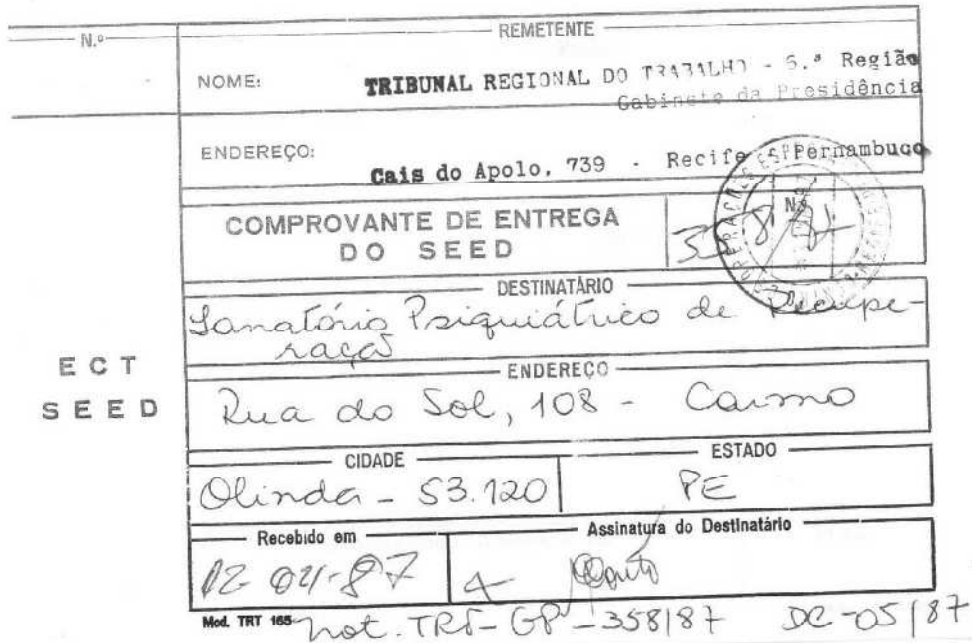 N.º
REMETENTE
NOME: TRIBUNAL REGIONAL DO TRABALHO - 6.ª Região
Gabinete da Presidência
ENDEREÇO: Cais do Apolo, 739 - Recife Pernambuco
COMPROVANTE DE ENTREGA
DO SEED
Nº
DESTINATÁRIO
Sanatório Psiquiátrico de Recupe-
ração
ECT
SEED
ENDEREÇO
Rua do Sol, 108 - Carmo
CIDADE
ESTADO
Olinda - 53.120
PE
Recebido em
Assinatura do Destinatário
12-04-87
Mod. TRT 165
not. TRT-GP-358/87 DC-05/87